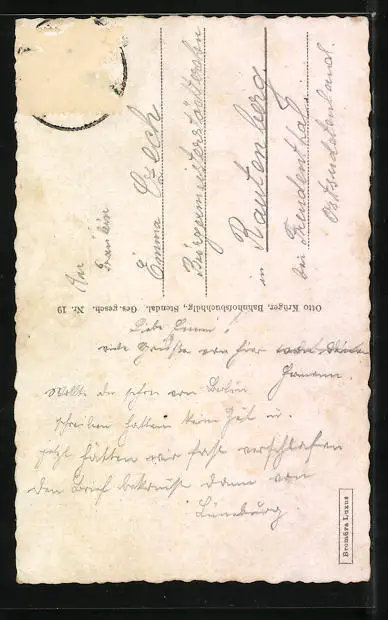 An
Fräulein
Emma Czech
Bürgermeisterstochter
in Rautenberg
bei Freudenthal
Ostsudetenland.
Otto Krüger, Bahnhofsbuchhdlg., Stendal. Ges. gesch. Nr. 19
Liebe Emma!
viele Grüße von hier
Hermann.
Wollte dir schon von Berlin
schreiben hatten keine Zeit u.
jetzt hätten wir fast verschlafen
den Brief bekomst dann von
Lüneburg
Bromüra Luxus